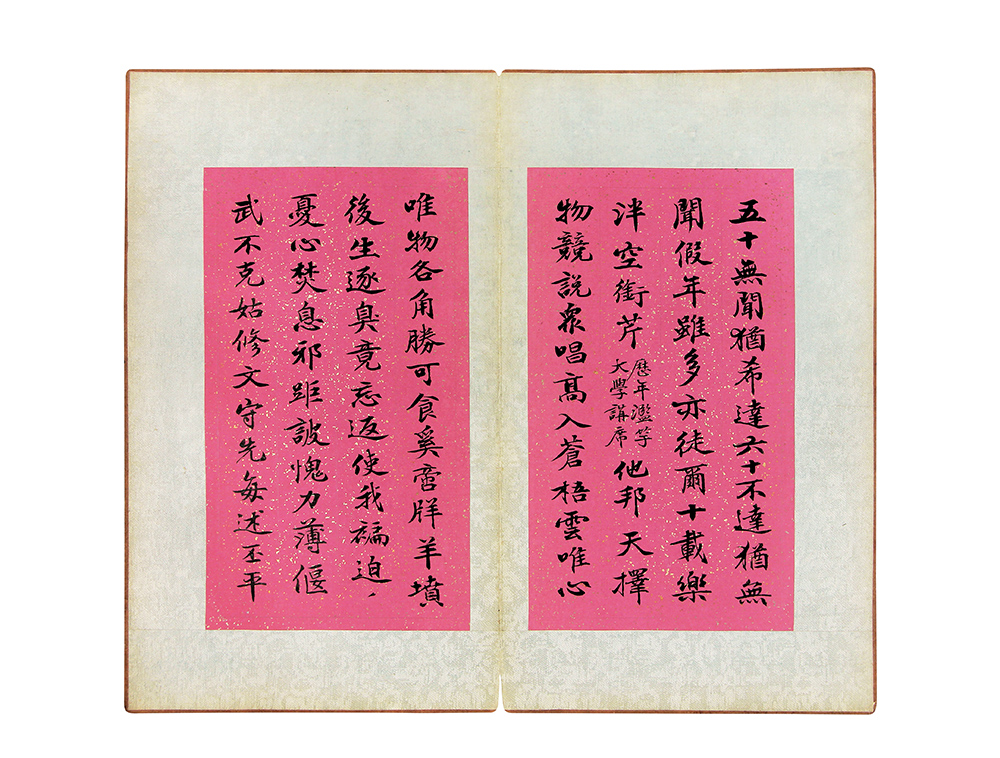 五十無聞猶希達六十不達猶無
聞假年雖多亦徒爾十載樂
泮空銜芹歷年濫竽大學講席他邦天擇
物競說眾唱高入蒼梧雲唯心
唯物各角勝可食奚啻牂羊墳
後生逐臭竟忘返使我褊迫、
憂心焚息邪距詖愧力薄偃
武不克姑修文守先每述丕平